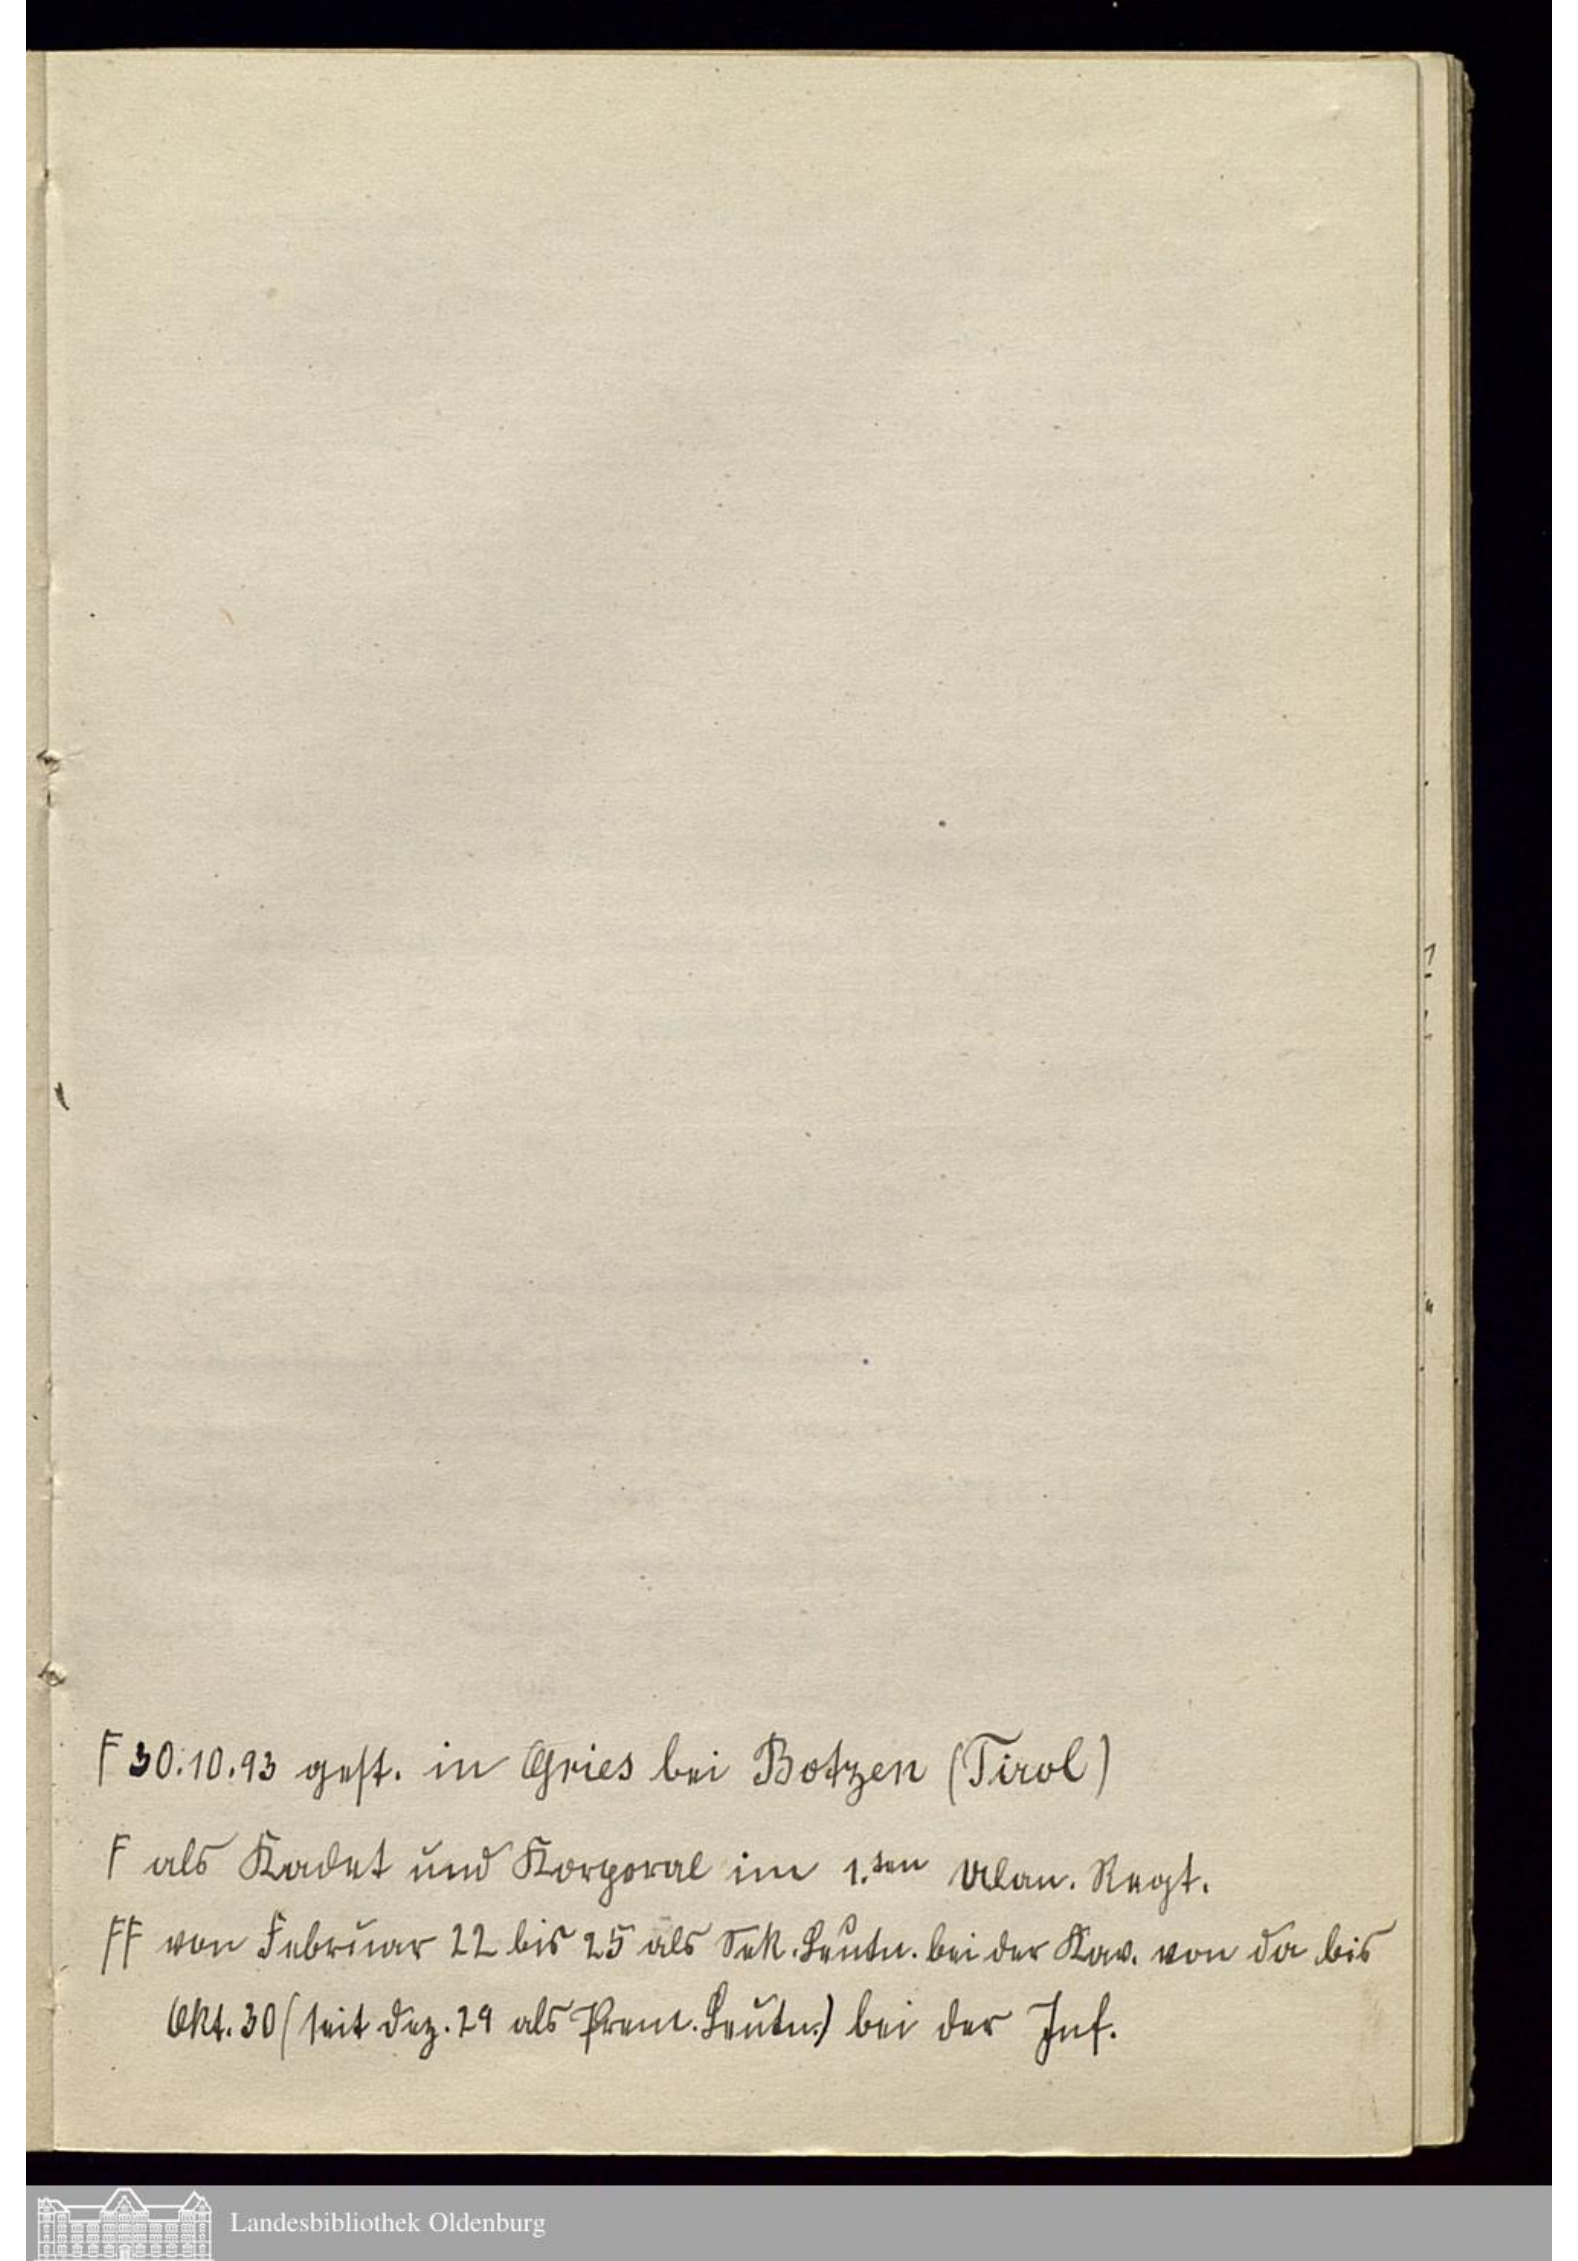 F 30.10.93 gest. in Gries bei Botzen (Tirol)
F als Kadet und Korporal im 1.ten Ulan. Regt.
FF von Februar 22 bis 25 als Sek. Leutn. bei der Kav. von da bis
Okt. 30 (seit Dez. 29 als Prem. Leutn.) bei der Inf.
Landesbibliothek Oldenburg